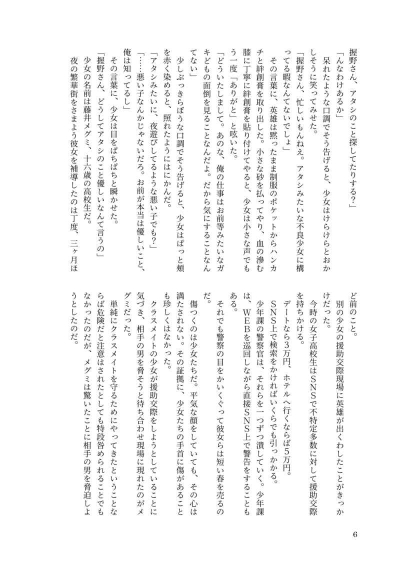 握野さん、アタシのこと探してたりする？」
「んなわけあるか」
　呆れたような口調でそう告げると、少女はけらけらとおか
しそうに笑ってみせた。
「握野さん、忙しいもんねえ。アタシみたいな不良少女に構
ってる暇なんてないでしょ」
　その言葉に、英雄は黙ったまま制服のポケットからハンカ
チと絆創膏を取り出した。小さな砂を払ってやり、血の滲む
膝に丁寧に絆創膏を貼り付けてやると、少女は小さな声でも
う一度「ありがと」と呟いた。
「どういたしまして。あのな、俺の仕事はお前等みたいなガ
キどもの面倒を見ることなんだよ。だから気にすることなん
てない」
　少しぶっきらぼうな口調でそう告げると、少女はぱっと頬
を赤く染めると、照れたようにはにかんだ。
「アタシみたいに、夜遊びしてるような悪い子でも？」
「……悪い子なんかじゃないだろ。お前が本当は優しいこと、
俺は知ってるし」
　その言葉に、少女は目をぱちぱちと瞬かせた。
「握野さん、どうしてアタシのこと優しいなんて言うの」
　少女の名前は藤井メグミ、十六歳の高校生だ。
　夜の繁華街をさまよう彼女を補導したのは丁度、三ヶ月ほ
ど前のこと。
　別の少女の援助交際現場に英雄が出くわしたことがきっか
けだった。
　今時の女子高校生はＳＮＳで不特定多数に対して援助交際
を持ちかける。
　デートなら３万円、ホテルへ行くならば５万円。
　ＳＮＳ上で検索をかければいくらでも引っかかる。
　少年課の警察官は、それらを一つずつ潰していく。少年課
は、ＷＥＢを巡回しながら直接ＳＮＳ上で警告をすることも
ある。
　それでも警察の目をかいくぐって彼女らは短い春を売るの
だ。
　傷つくのは少女たちだ。平気な顔をしていても、その心は
満たされない。その証拠に、少女たちの手首に傷があること
も珍しくはなかった。
　クラスメイトの少女が援助交際をしようとしていることに
気づき、相手の男を脅そうと待ち合わせ現場に現れたのがメ
グミだった。
　単純にクラスメイトを守るためにやってきたということな
らば危険だと注意はされたとしても特段咎められることでも
なかったのだが、メグミは驚いたことに相手の男を脅迫しよ
うとしたのだ。
6